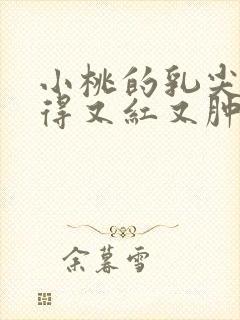 小桃的乳尖
得又红又肿
余暮雪